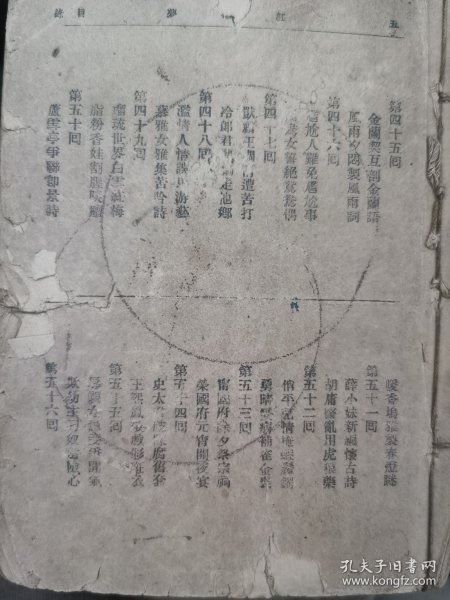 紅 夢 目 錄
五
第四十五回
金蘭契互剖金蘭語
風雨夕悶製風雨詞
第四十六回
尷尬人難免尷尬事
鴦女誓絕鴛鴦偶
第四十七回
獃霸王調情遭苦打
冷郎君懼禍走他鄉
第四十八回
濫情人情誤思游藝
慕雅女雅集苦吟詩
第四十九回
琉璃世界白雪紅梅
脂粉香娃割腥啖羶
第五十回
蘆雪亭爭聯卽景詩
暖香塢雅製春燈謎
第五十一回
薛小妹新編懷古詩
胡庸醫亂用虎狼藥
第五十二回
俏平兒情掩蝦鬚鐲
勇晴雯病補雀金裘
第五十三回
甯國府除夕祭宗祠
榮國府元宵開夜宴
第五十四回
史太君破陳腐舊套
王熙鳳效戲彩斑衣
第五十五回
第五十六回
孔夫子旧书网
www.kongfz.com